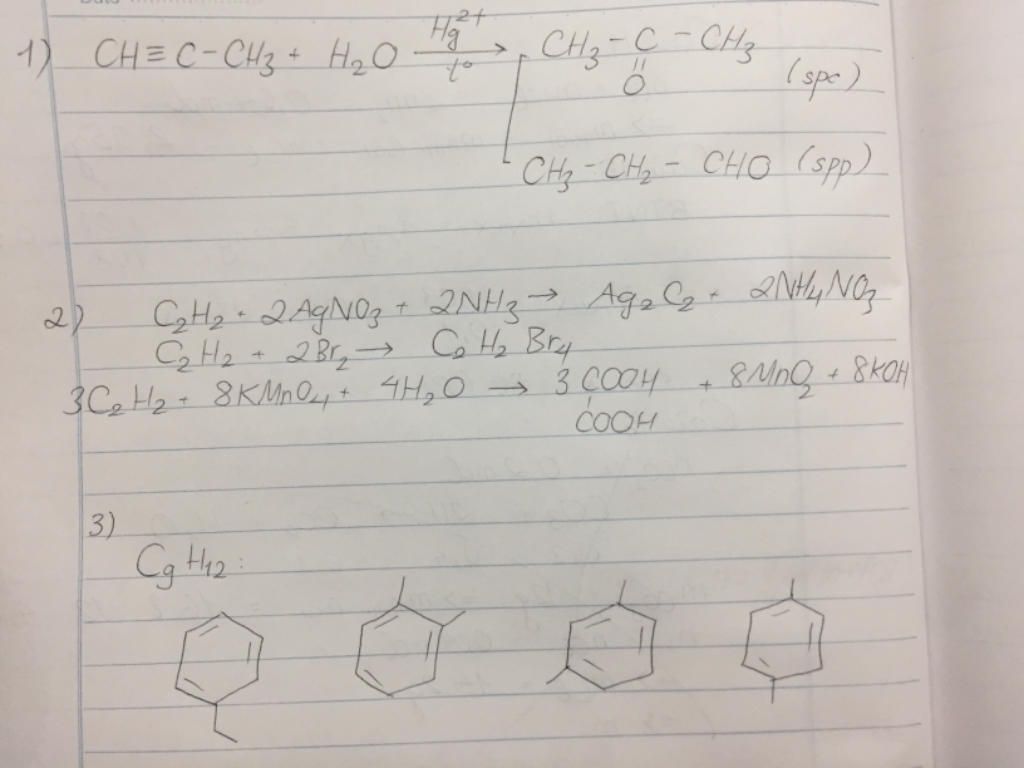 1) CH≡C-CH3 + H2O Hg2+ t° → CH3-C-CH3
O (spc)
CH3-CH2-CHO (spp)
2) C2H2 + 2AgNO3 + 2NH3 → Ag2C2 + 2NH4NO3
C2H2 + 2Br2 → C2H2Br4
3C2H2 + 8KMnO4 + 4H2O → 3 COOH + 8MnO2 + 8KOH
COOH
3)
C9H12: